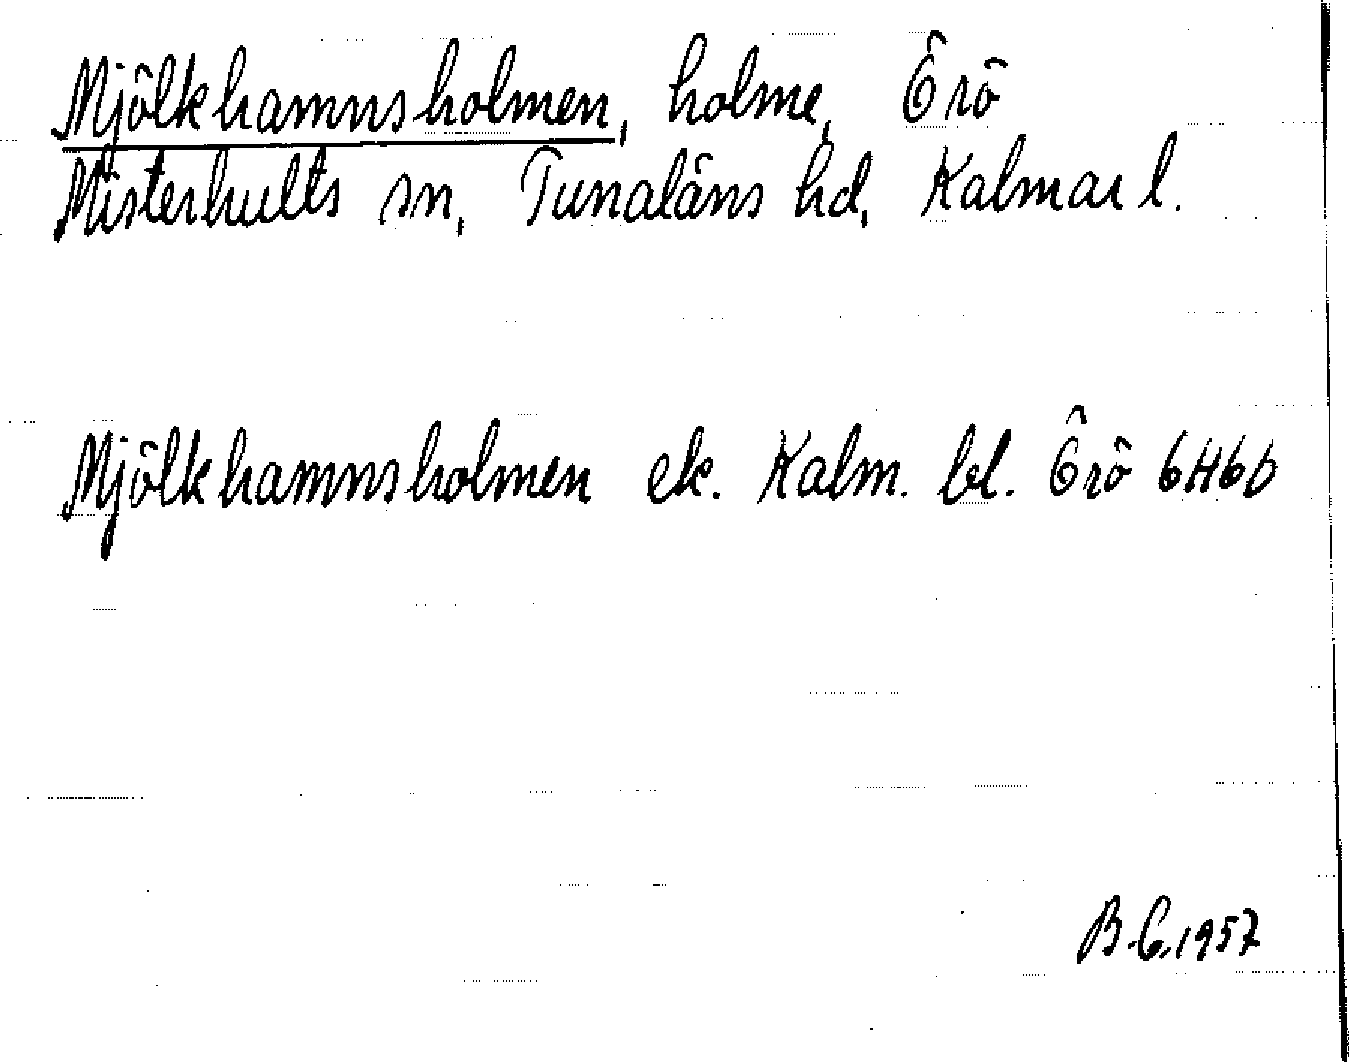 Mjölkhamnsholmen, holme, Örö
Misterhults sn, Tunaläns hd, Kalmar l.
Mjölkhamnsholmen ek. Kalm. bl. Örö 6H6b
B.C. 1957